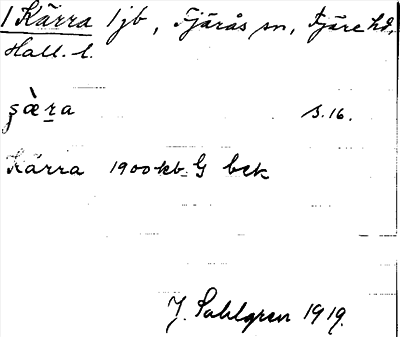 1 Kärra 1 jb, Fjärås sn, Fjäre hd,
Hall. l.
s. 16.
Kärra 1900 kb. G bek
J. Sahlgren 1919.